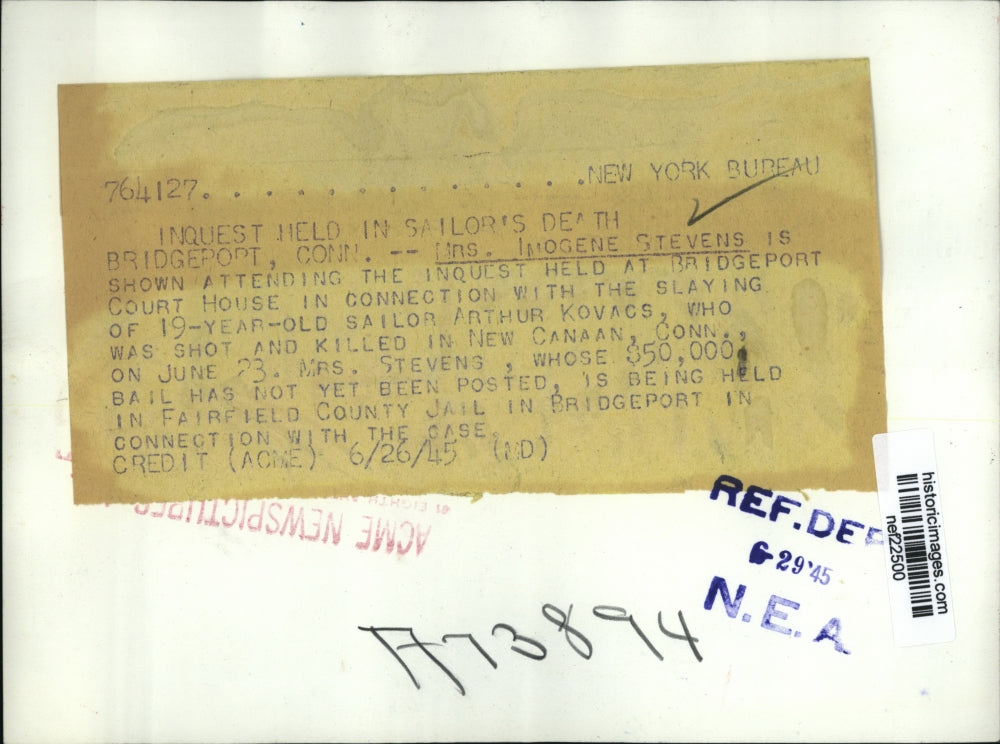 764127. . . . . . . . . . . . . . .NEW YORK BUREAU
INQUEST HELD IN SAILOR'S DEATH
BRIDGEPORT, CONN. -- MRS. IMOGENE STEVENS IS
SHOWN ATTENDING THE INQUEST HELD AT BRIDGEPORT
COURT HOUSE IN CONNECTION WITH THE SLAYING
OF 19-YEAR-OLD SAILOR ARTHUR KOVACS, WHO
WAS SHOT AND KILLED IN NEW CANAAN, CONN.,
ON JUNE 23. MRS. STEVENS , WHOSE $50,000
BAIL HAS NOT YET BEEN POSTED, IS BEING HELD
IN FAIRFIELD COUNTY JAIL IN BRIDGEPORT IN
CONNECTION WITH THE CASE.
CREDIT (ACME) 6/26/45 (MD)
ACME NEWSPICTURES
REF. DE
6-29'45
N.E.A
historicimages.com
nef22500
A73894